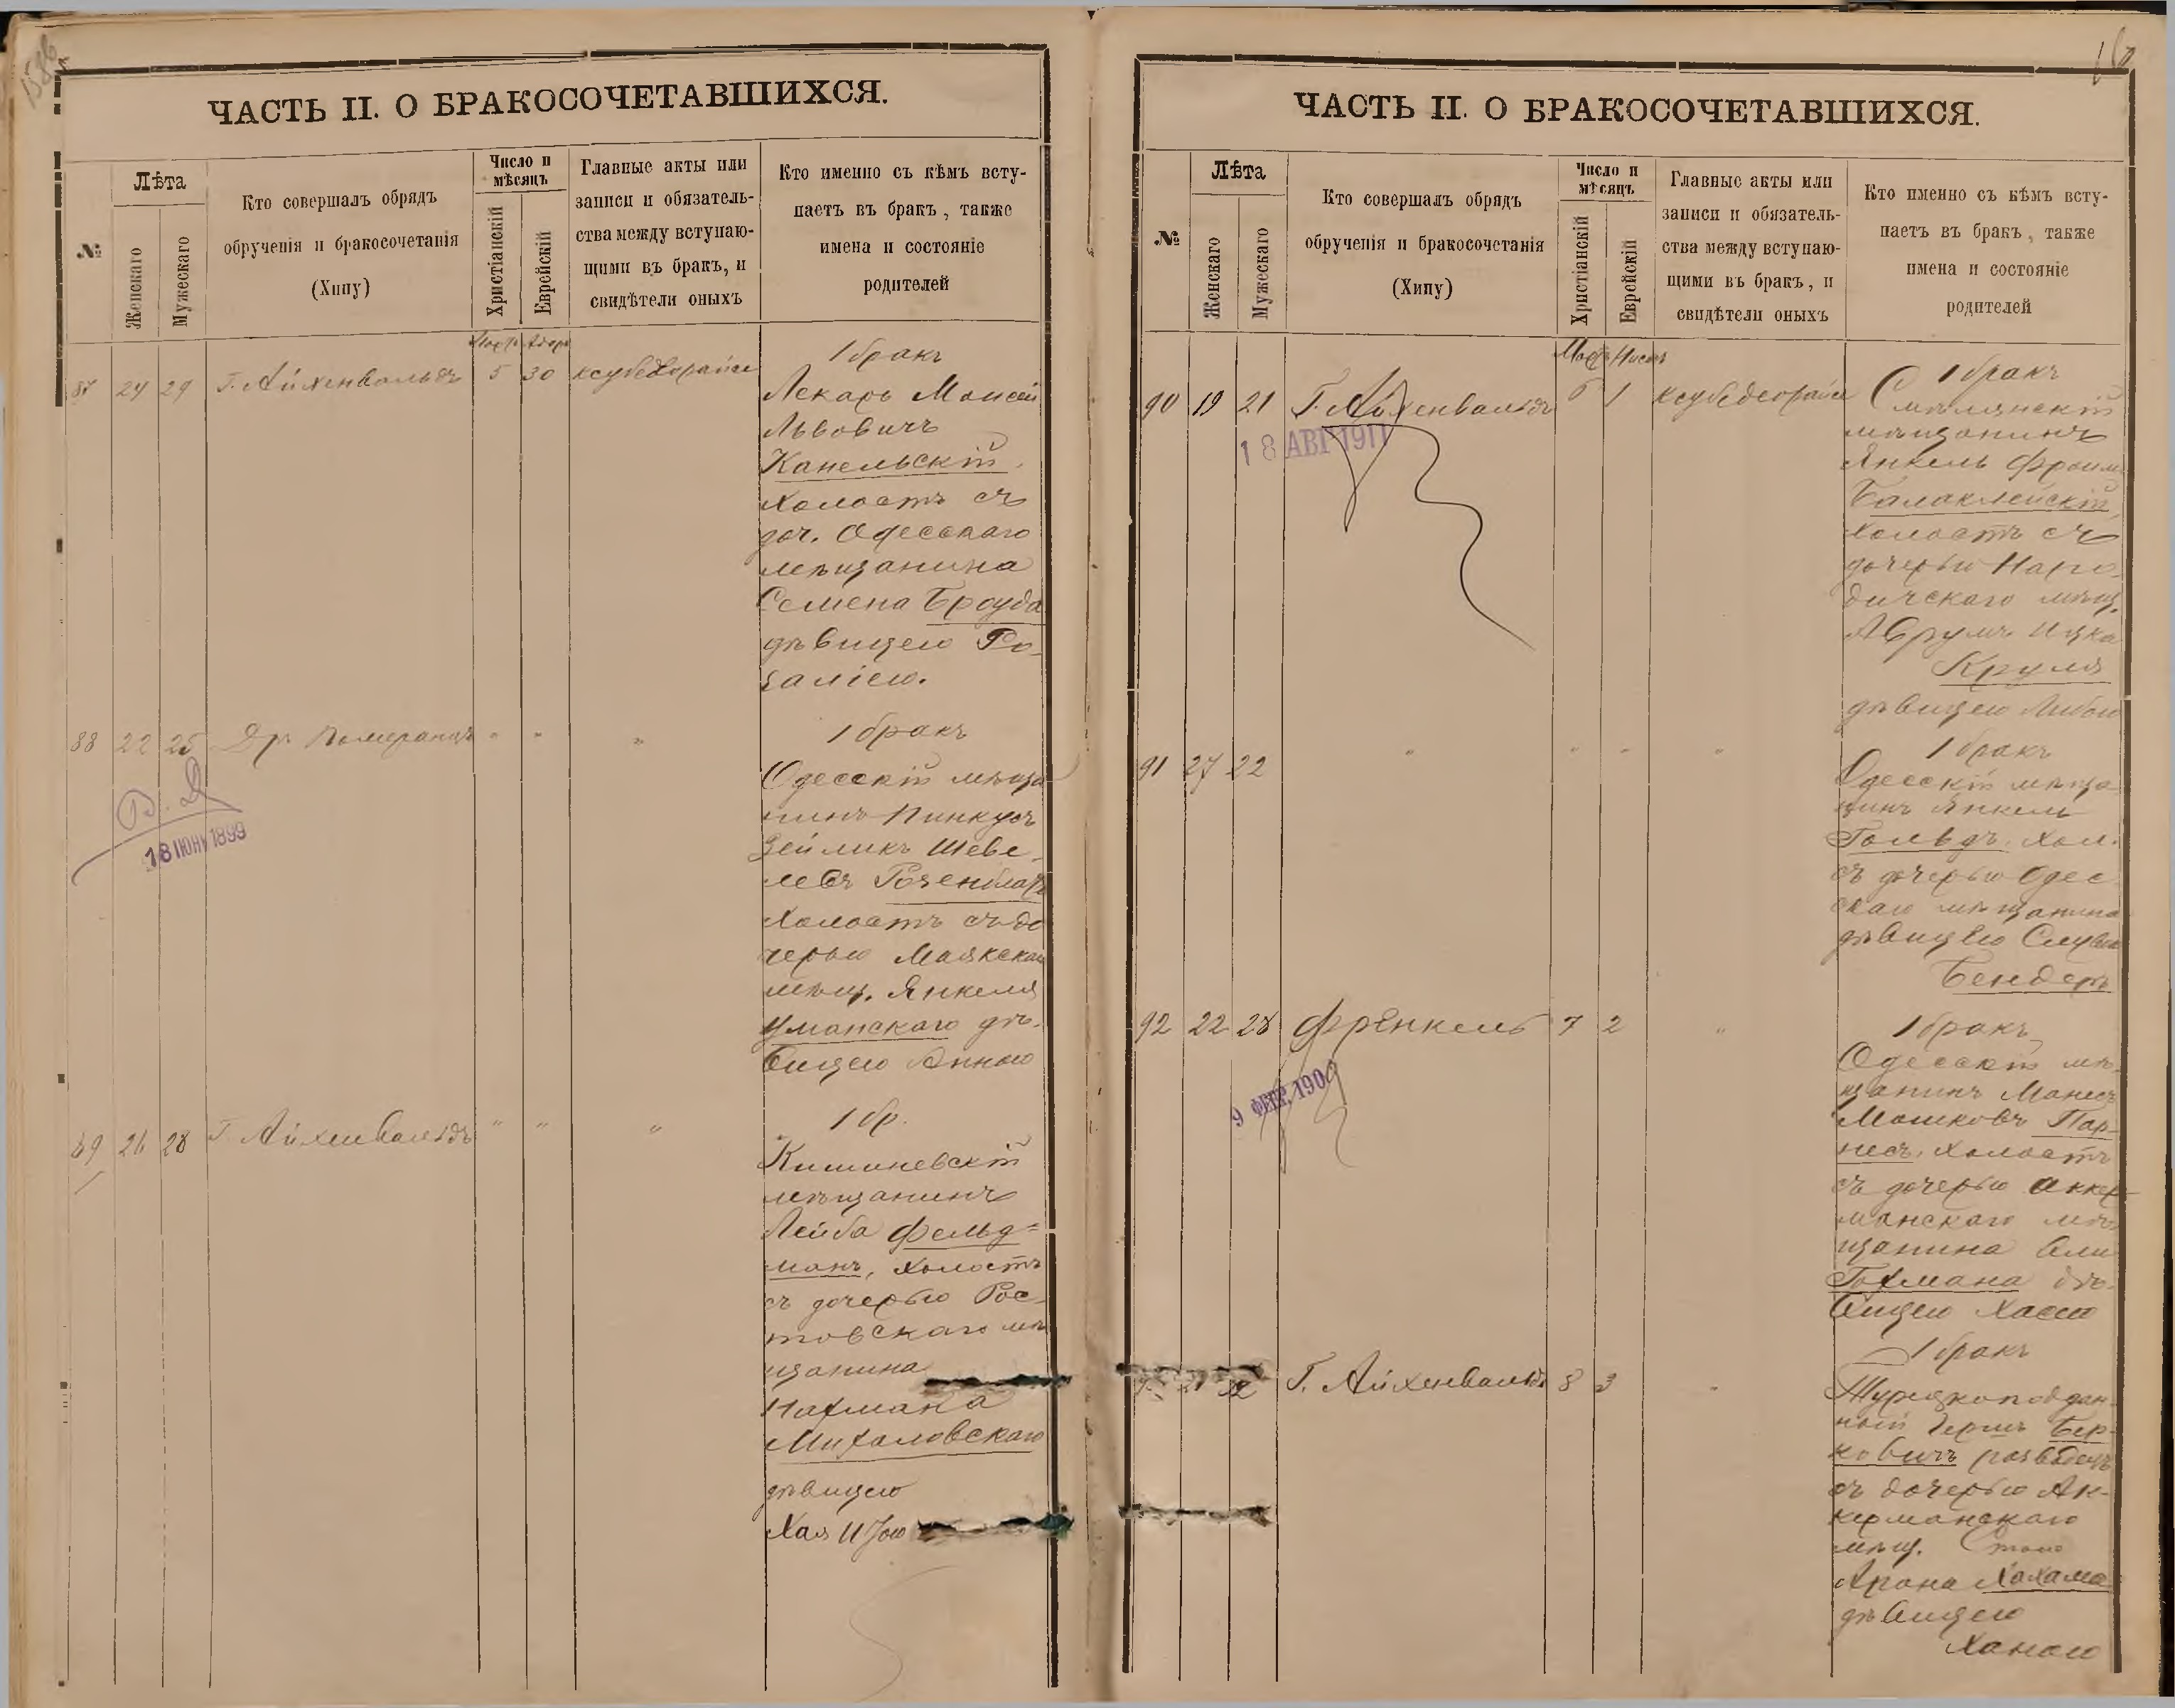 ЧАСТЬ II. О БРАКОСОЧЕТАВШИХСЯ.
№
Лѣта
Женскаго
Мужескаго
Кто совершалъ обрядъ
обрученія и бракосочетанія
(Хипу)
Число и
мѣсяцъ
Христіанскій
Еврейскій
Главные акты или
записи и обязатель-
ства между вступаю-
щими въ бракъ, и
свидѣтели оныхъ
Кто именно съ кѣмъ всту-
паетъ въ бракъ, также
имена и состояніе
родителей
Мартъ Адаръ
87 24 29 Г. Айхенвальдъ 5 30
1 бракъ
Лекарь Моисей
Львовичъ
Канельскій
холостъ съ
доч. Одесскаго
мѣщанина
Семена Брауда
дѣвицею Ро-
заліею.
88 22 25 Др. Померанцъ " " "
18 ИЮН 1899
1 бракъ
Одесскій мѣща
нинъ Пинкусъ
Зейликъ Шеве-
левъ Розенблатъ
холостъ съ до
черью Маякскаго
мѣщ. Янкеля
Уманскаго дѣ-
вицею Анною
89 26 28 Г. Айхенвальдъ " " "
1 бр.
Кишиневскій
мѣщанинъ
Лейба Фельд=
манъ, холостъ
съ дочерью Рос-
товскаго мѣ
щанина
Нахмана
Михаловскаго
дѣвицею
Хая
ЧАСТЬ II. О БРАКОСОЧЕТАВШИХСЯ.
№
Лѣта
Женскаго
Мужескаго
Кто совершалъ обрядъ
обрученія и бракосочетанія
(Хипу)
Число и
мѣсяцъ
Христіанскій
Еврейскій
Главные акты или
записи и обязатель-
ства между вступаю-
щими въ бракъ, и
свидѣтели оныхъ
Кто именно съ кѣмъ всту-
паетъ въ бракъ, также
имена и состояніе
родителей
Мартъ Нисанъ
90 19 21 Г. Айхенвальдъ 6 1
18 АВГ 1911
1 бракъ
Смѣлянскій
мѣщанинъ
Янкель Фроим
Балаклейскій,
холостъ съ
дочерью Наро-
дичскаго мѣщ.
Аврумъ Ицка
Круля
дѣвицею Либою
91 27 22 " " " "
1 бракъ
Одесскій мѣща
нинъ Янкель
Гольдъ, хол.
съ дочерью Одес
скаго мѣщанина
дѣвицею
Бендеръ
92 22 28 Френкель 7 2 "
9 ФЕВР. 190
1 бракъ
Одесскій мѣ
щанинъ Манесъ
Мошковъ Пар-
несъ, холостъ
съ дочерью Аккер-
манскаго мѣ
щанина
Гохмана дѣ-
вицею Хаею
Г. Айхенвальдъ 8 3 "
1 бракъ
Турецкоподдан-
ный Гершъ Бер-
ковичъ разведенъ
съ дочерью Ак-
керманскаго
мѣщ.
Арона Хахама
дѣвицею
Ханою